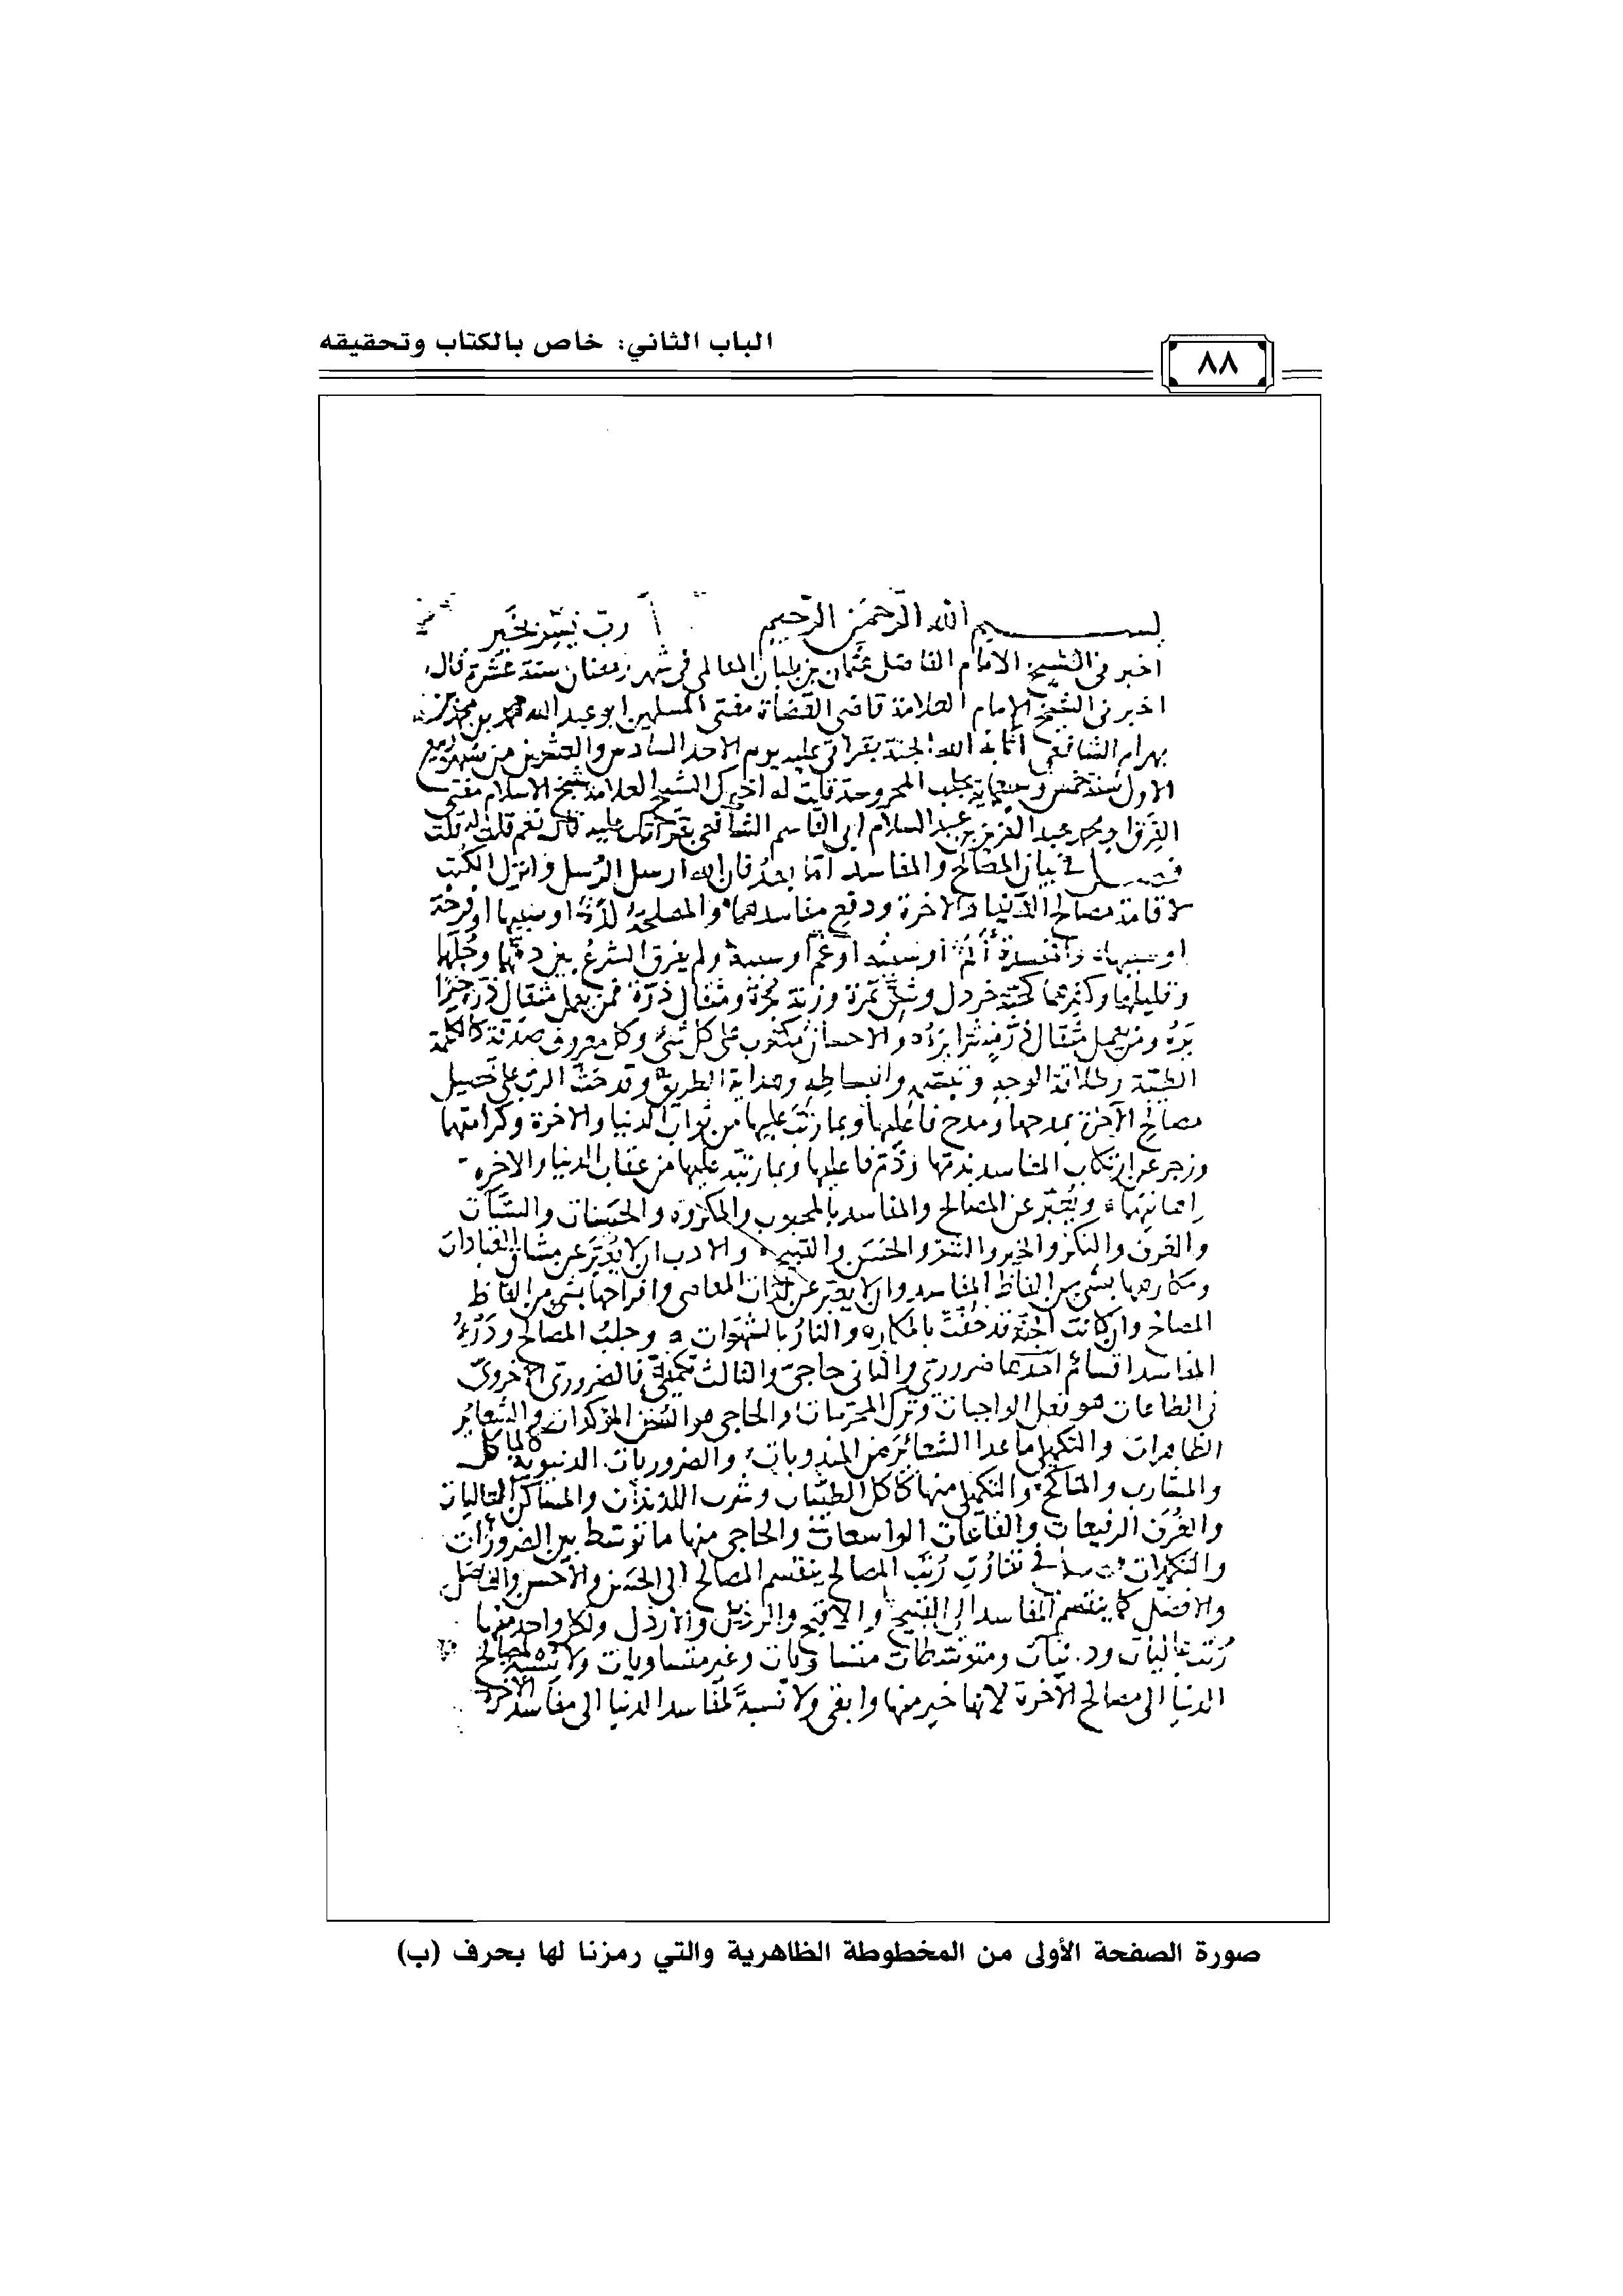 الباب الثاني: خاص بالكتاب وتحقيقه
٨٨
بسم الله الرحمن الرحيم رب يسر بخير
اخبرني الشيخ الامام الفاضل عثمان بن بلبان المقاتلي في شهر رمضان سنة عشرة قال
اخبرني الشيخ الامام العلامة قاضي القضاة مفتي المسلمين ابو عبد الله محمد بن محمد بن
بهرام الشافعي اثابه الله الجنة بقراتي عليه يوم الاحد السادس والعشرين من شهر ربيع
الاول سنة خمس وسبعماية بحلب المحروسة قلت له اخبرك الشيخ العلامة شيخ الاسلام مفتي
الفرق ابو محمد عبد العزيز بن عبد السلام ابي القاسم الشافعي بقراتك عليه قال نعم قلت له قلت
فصل في بيان المصالح والمفاسد اما بعد فان الله ارسل الرسل وانزل الكتب
لاقامة مصالح الدنيا والاخرة ودفع مفاسدهما والمصلحة لذة او سببها او فرحة
او سببها والمفسدة ألم او سببه او غم او سببه ولم يفرق الشرع بين دقها وجلها
وقليلها وكثيرها كحبة خردل وشق تمرة وزنة برة ومثقال ذرة فمن يعمل مثقال ذرة خيرا
يره ومن يعمل مثقال ذرة شرا يره والاحسان مكتوب على كل شيء وكل معروف صدقة كالكلمة
الطيبة وطلاقة الوجه وتبسمه وانبساطه وهداية الطريق وقد حث الرب على تحصيل
مصالح الآخرة بمدحها ومدح فاعلها وبما رتب عليها من ثواب الدنيا والاخرة وكرامتهما
وزجر عن ارتكاب المفاسد بذمها وذم فاعلها وبما رتبه عليها من عقاب الدنيا والاخرة
واهانتهما ويعبر عن المصالح والمفاسد بالمحبوب والمكروه والحسنات والسيّآت
والعرف والنكر والخير والشر والحسن والقبيح والادب ان لا يعبر عن مشاق العبادات
ومكارهها بشيء من الفاظ المفاسد وان لا يعبر عن لذات المعاصي وافراحها بشيء من الفاظ
المصالح وان كانت الجنة قد حفت بالمكاره والنار بالشهوات وجلب المصالح ودرء
المفاسد اقسام احدها ضروري والثاني حاجي والثالث تكميلي فالضروري الاخروي
في الطاعات هو فعل الواجبات وترك المحرمات والحاجي هو السنن المؤكدات والشعائر
الظاهرات والتكميلي ما عدا الشعائر من المندوبات والضروريات الدنيوية كالمآكل
والمشارب والمناكح والتكميلي منها كاكل الطيبات وشرب اللذيذات والمساكن العاليات
والغرف الرفيعات والقاعات الواسعات والحاجي منها ما توسط بين الضرورات
والتكملات فصل في تفاوت رتب المصالح ينقسم المصالح الى الحسن والاحسن والفاضل
والافضل كما ينقسم المفاسد الى القبيح والاقبح والرذيل والارذل ولكل واحد منها
رتب عاليات ودنيّآت ومتوسطات متساويات وغير متساويات ولا نسبة لمصالح
الدنيا الى مصالح الآخرة لانها خير منها وابقى ولا نسبة لمفاسد الدنيا الى مفاسد الآخرة
صورة الصفحة الأولى من المخطوطة الظاهرية والتي رمزنا لها بحرف (ب)